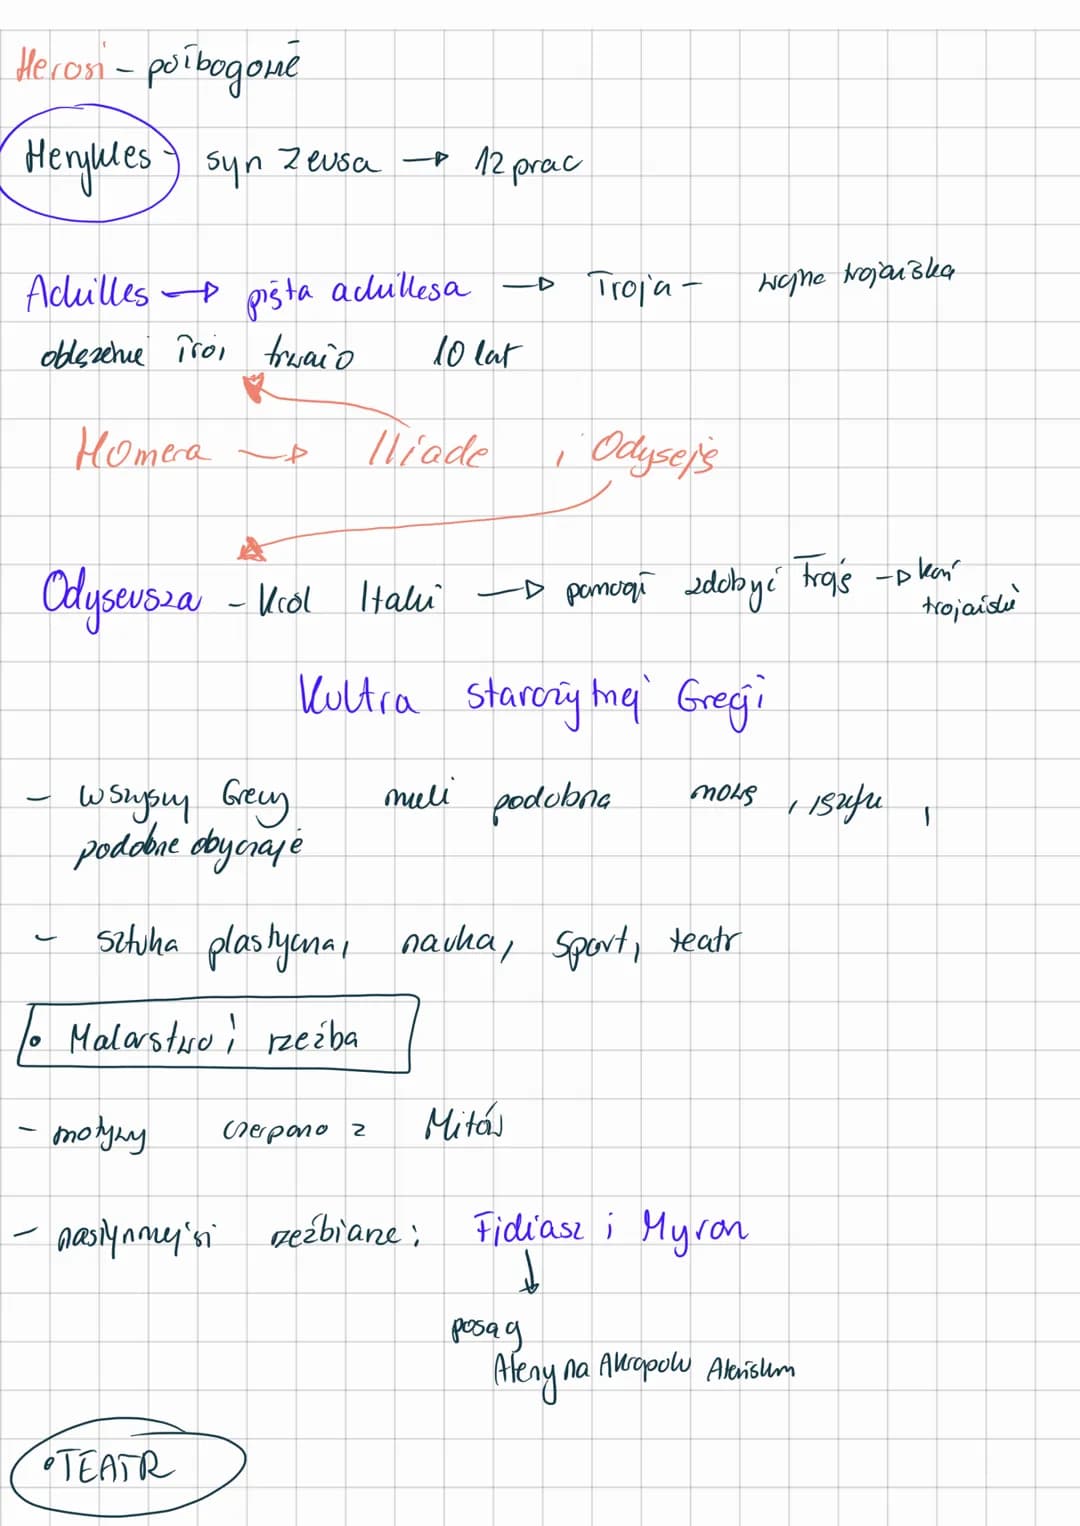 Herosi - półbogowie
Herykles - syn Zeusa → 12 prac
Achilles → pięta achillesa → Troja - wojna trojańska
oblężenie Troi trwało 10 lat
Homera → Iliade i Odyseję
Odyseusza - Król Itaki → pomógł zdobyć Troję → koń
trojański
Kultra starożytnej Grecji
- wszyscy Grecy mieli podobną mowę, języku,
podobne obyczaje
- sztuka plastyczna, nauka, sport, teatr
• Malarstwo i rzeźba
- motywy czerpano z Mitów
- nasłynniejsi rzeźbiarze: Fidiasz i Myron
↓
posąg
Ateny na Akropolu Ateńskim
• TEATR